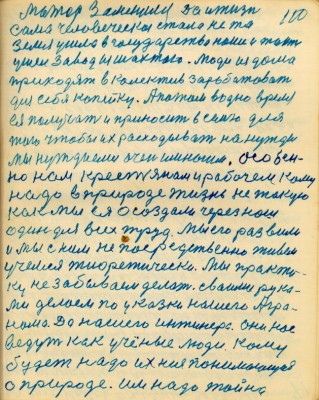 100
Мотор Заменили Да и жизн
сама человеческа стала не та
Земля ушла в государство нами и тот
ушел Завод и шахтой. Люди из дома
приходят в колектив зарабатоват
для себя копейку. А потом водно время
ея получают и приносит в семю для
того чтобы их расходыват на нужди
Мы нуждаеми очен многим, особен-
но нам крестянам и рабочем кому
надо в природе жизнь не такую
как мы ея создали через наш
один для всех труд. Мы его развили
и мы с ним не посредственно живем
учемся тиоретически. Мы практи-
ку не забываем делат. своими рука-
ми делаем по указки нашего Агра-
нома. Да нашего инжинера. они нас
ведут как учёные люди. кому
будет надо их ния понимающуся
о природе. им надо тайна